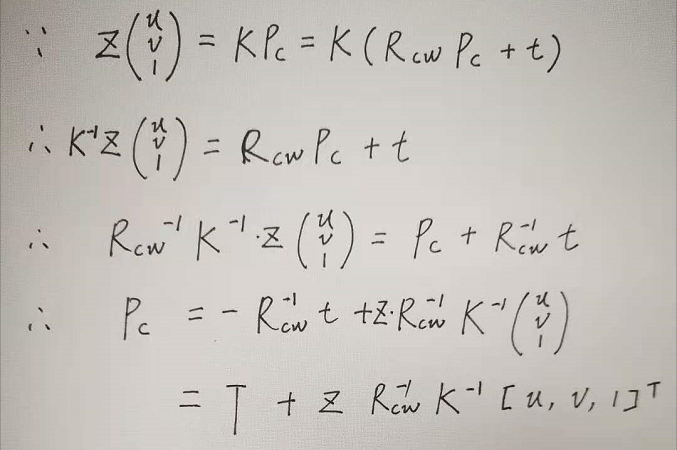 ∵ Z(u v 1) = KPc = K(Rcw Pc + t)
∴ K⁻¹Z(u v 1) = Rcw Pc + t
∴ Rcw⁻¹ K⁻¹·Z(u v 1) = Pc + Rcw⁻¹ t
∴ Pc = - Rcw⁻¹ t + Z·Rcw⁻¹ K⁻¹(u v 1)
= T + Z Rcw⁻¹ K⁻¹ [u, v, 1]ᵀ